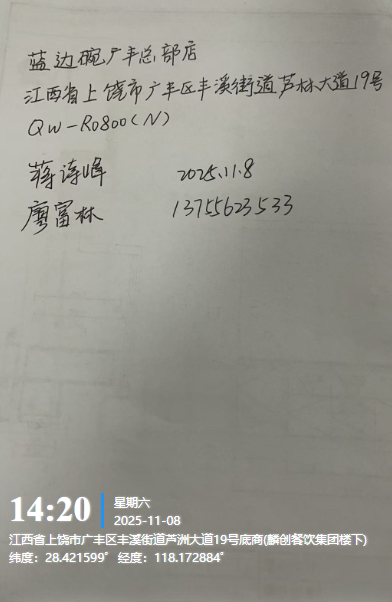 蓝边碗广丰总部店
江西省上饶市广丰区丰溪街道芦林大道19号
QW-R0800(N)
蒋诗峰 2025.11.8
廖富林 13755623533
14:20 星期六
2025-11-08
江西省上饶市广丰区丰溪街道芦洲大道19号底商(麟创餐饮集团楼下)
纬度：28.421599° 经度：118.172884°